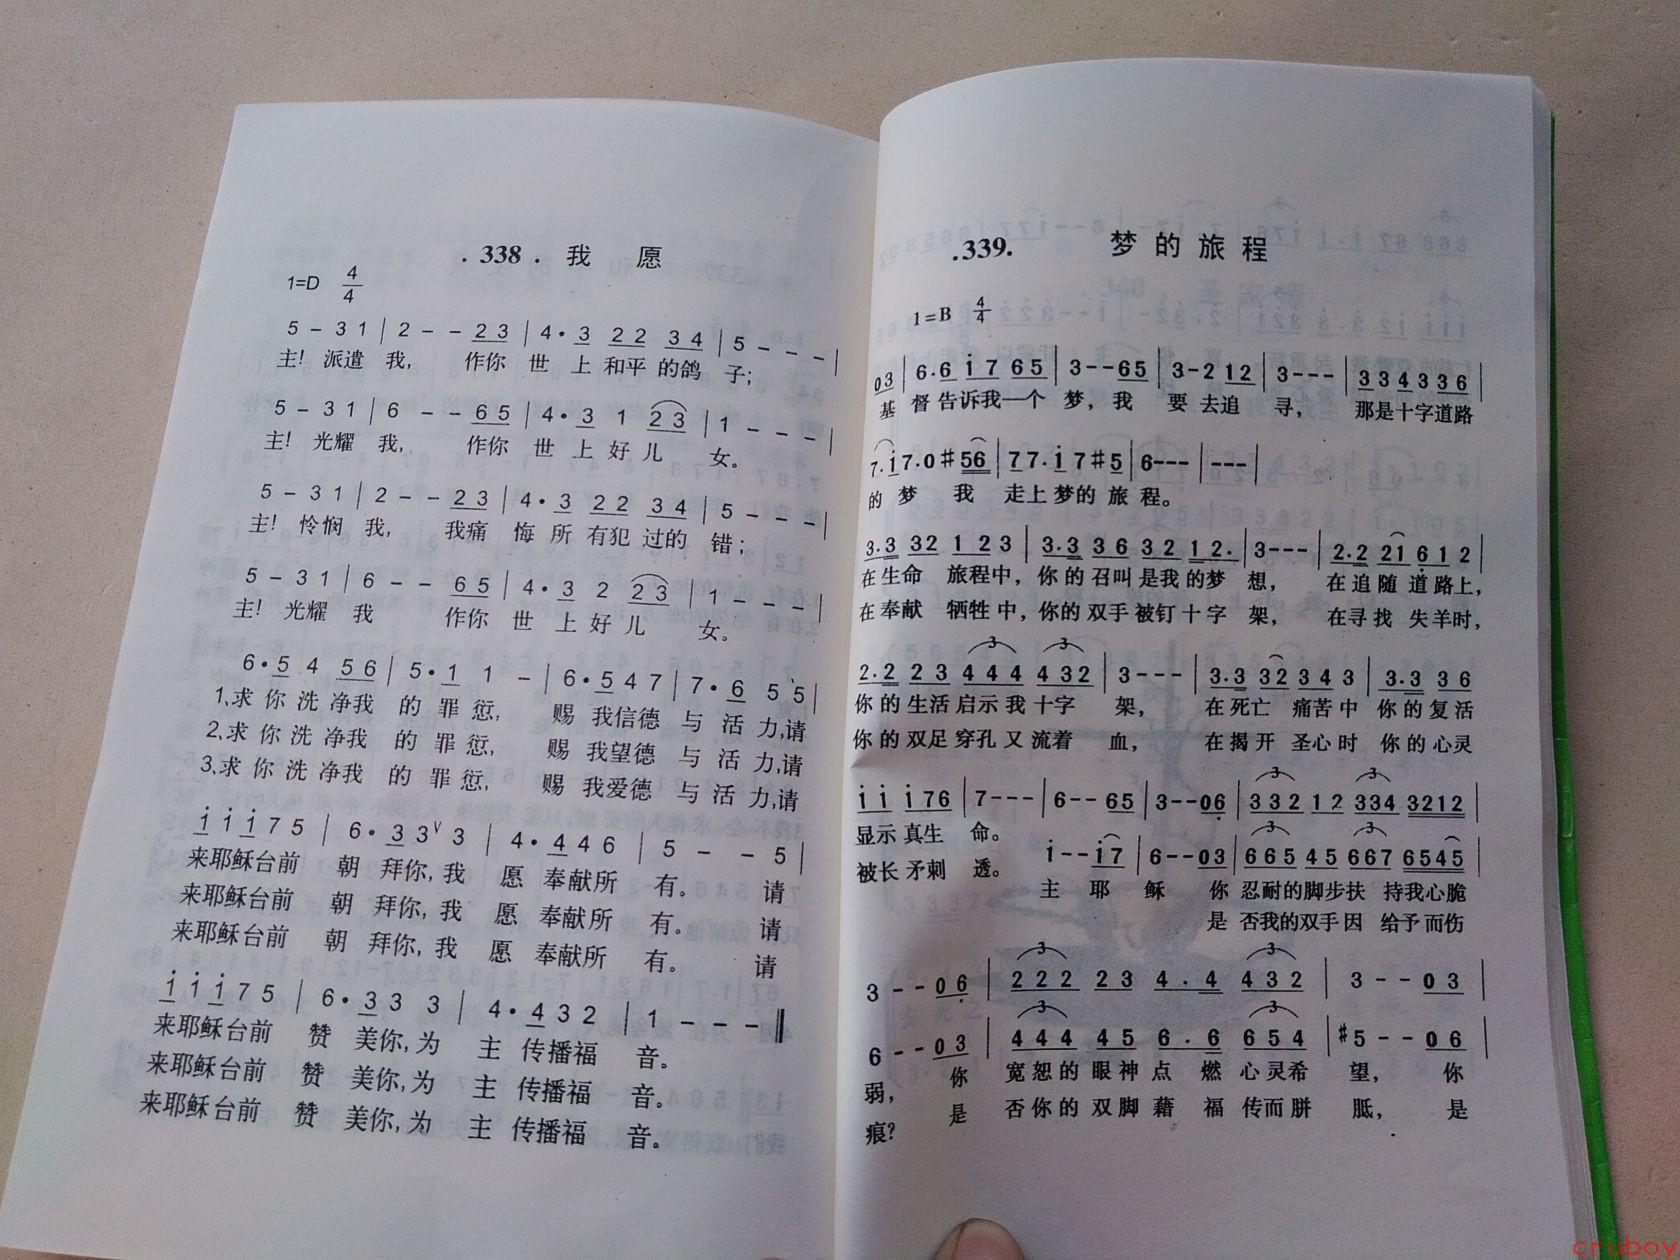 .338. 我 愿
1=D 4/4
5 – 3 1 | 2 – – 2 3 | 4 · 3 2 2 3 4 | 5 – – – |
主! 派遣 我, 作你 世 上 和平 的鸽 子;
5 – 3 1 | 6 – – 6 5 | 4 · 3 1 2 3 | 1 – – – |
主! 光耀 我, 作你 世 上 好 儿 女。
5 – 3 1 | 2 – – 2 3 | 4 · 3 2 2 3 4 | 5 – – – |
主! 怜悯 我, 我痛 悔 所 有犯 过的 错;
5 – 3 1 | 6 – – 6 5 | 4 · 3 2 2 3 | 1 – – – |
主! 光耀 我 作你 世 上 好 儿 女。
6 · 5 4 5 6 | 5 · 1 1 – | 6 · 5 4 7 | 7 · 6 5 5 |
1,求 你 洗 净我 的 罪 愆, 赐 我信德 与 活 力,请
2,求 你 洗 净我 的 罪 愆, 赐 我望德 与 活 力,请
3,求 你 洗 净我 的 罪 愆, 赐 我爱德 与 活 力,请
i i i 7 5 | 6 · 3 3 ∨ 3 | 4 · 4 4 6 | 5 – – 5 |
来耶稣台前 朝 拜你, 我 愿 奉献所 有。 请
来耶稣台前 朝 拜你, 我 愿 奉献所 有。 请
来耶稣台前 朝 拜你, 我 愿 奉献所 有。 请
i i i 7 5 | 6 · 3 3 3 | 4 · 4 3 2 | 1 – – – ‖
来耶稣台前 赞 美你, 为 主 传播福 音。
来耶稣台前 赞 美你, 为 主 传播福 音。
来耶稣台前 赞 美你, 为 主 传播福 音。
.339. 梦 的 旅 程
1=B 4/4
0 3 | 6 · 6 i 7 6 5 | 3 – – 6 5 | 3 – 2 1 2 | 3 – – – | 3 3 4 3 3 6 |
基 督 告诉我一个 梦, 我 要 去追 寻, 那是十字道路
7 · i 7 · 0 #5 6 | 7 7 · i 7 #5 | 6 – – – | – – – |
的 梦 我 走上 梦的 旅 程。
3 · 3 3 2 1 2 3 | 3 · 3 3 6 3 2 1 2 · | 3 – – – | 2 · 2 2 1 6 1 2 |
在生命 旅程中, 你的召叫是我的梦 想, 在追随 道路上,
在奉献 牺牲中, 你的双手被钉十字 架, 在寻找 失羊时,
2 · 2 2 3 4 4 4 4 3 2 | 3 – – – | 3 · 3 3 2 3 4 3 | 3 · 3 3 6
你的生活启示我十字 架, 在死亡 痛苦中 你的复活
你的双足穿孔又流着 血, 在揭开 圣心时 你的心灵
i i i 7 6 | 7 – – – | 6 – – 6 5 | 3 – – 0 6 | 3 3 2 1 2 3 3 4 3 2 1 2 |
显示真生 命。
i – – i 7 | 6 – – 0 3 | 6 6 5 4 5 6 6 7 6 5 4 5 |
被长矛刺 透。 主 耶 稣 你 忍耐的脚步扶 持我心脆
是 否我的双手因 给予而伤
3 – – 0 6 | 2 2 2 2 3 4 . 4 4 3 2 | 3 – – 0 3 |
6 – – 0 3 | 4 4 4 4 5 6 . 6 6 5 4 | #5 – – 0 6 |
弱, 你 宽恕的眼神点 燃 心灵希 望, 你
痕? 是 否你的双脚藉 福 传而胼 胝, 是
cruboy